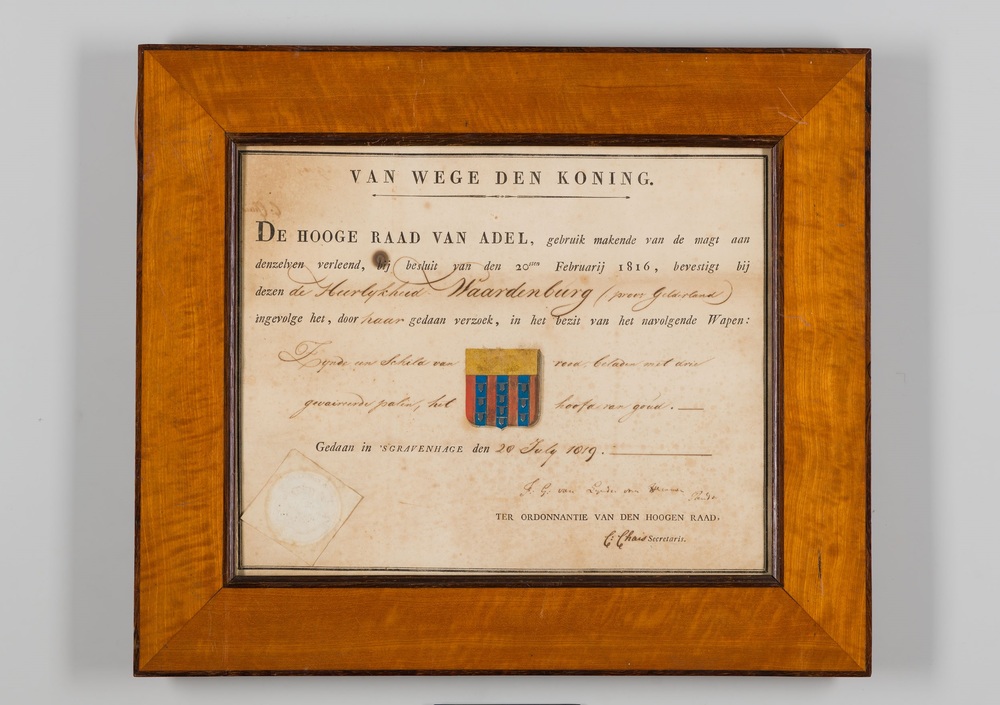 VAN WEGE DEN KONING.
DE HOOGE RAAD VAN ADEL, gebruik makende van de magt aan
denzelven verleend, bij besluit van den 20sten Februarij 1816, bevestigt bij
dezen de Heerlykheid Waardenburg (prov: Gelderland)
ingevolge het, door haar gedaan verzoek, in het bezit van het navolgende Wapen:
Zynde een Schild van rood, beladen met drie
gevairreerde palen, het hoofd van goud.
Gedaan in 'SGRAVENHAGE den 20 July 1819.
TER ORDONNANTIE VAN DEN HOOGEN RAAD,
C: Chais Secretaris.